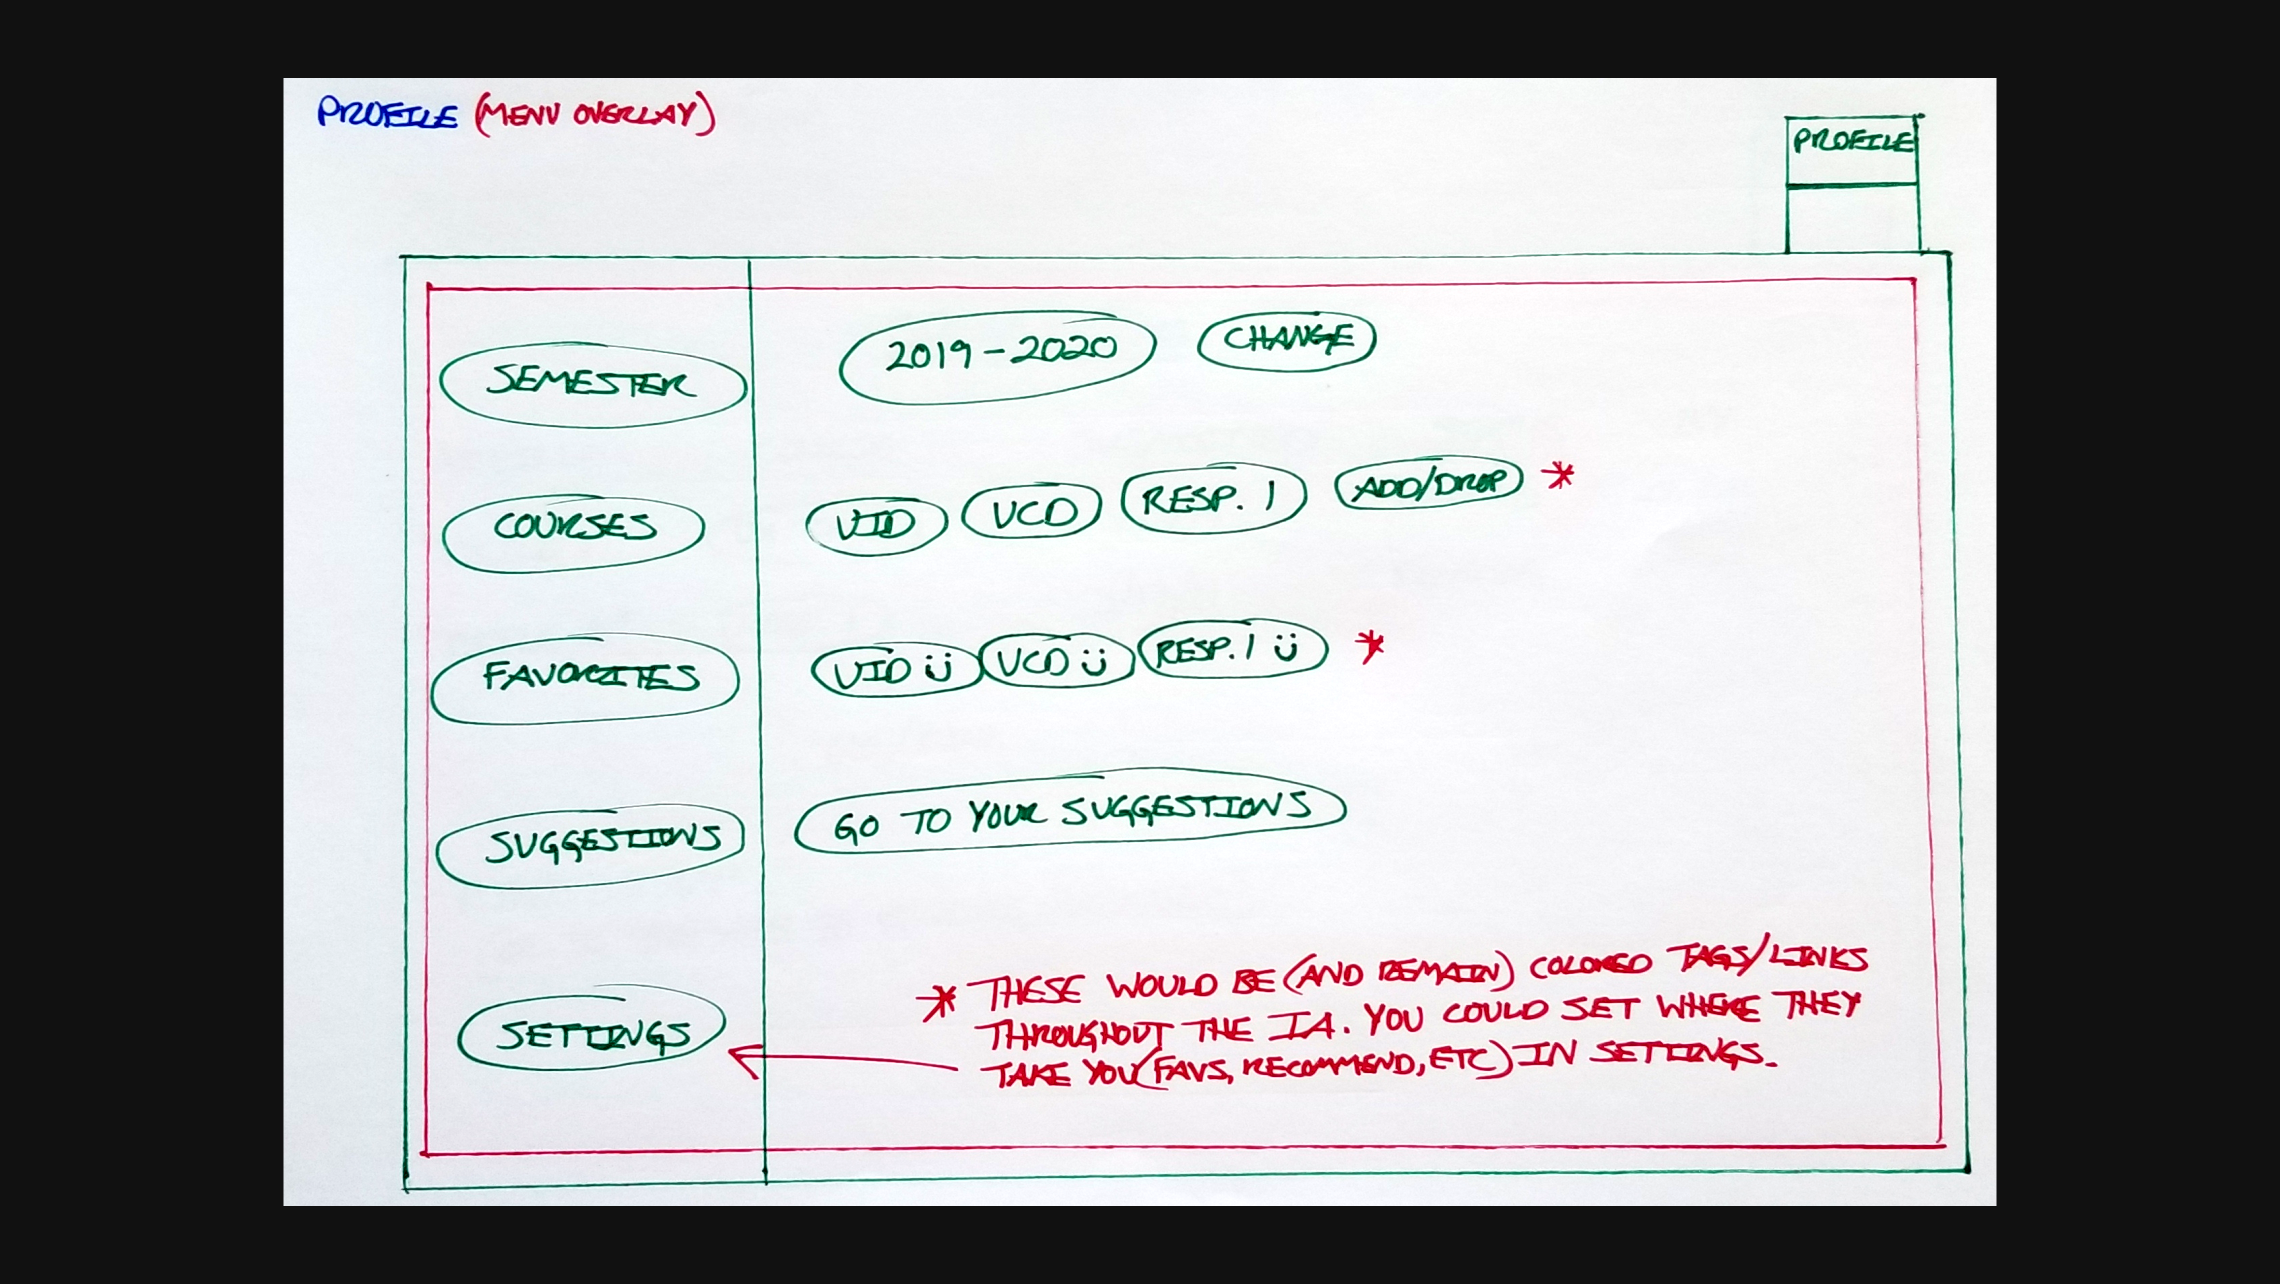 PROFILE (MENU OVERLAY)
PROFILE
SEMESTER
2019-2020
CHANGE
COURSES
VID
VCD
RESP. 1
ADD/DROP
*
FAVORITES
VID Ü
VCD Ü
RESP. 1 Ü
*
SUGGESTIONS
GO TO YOUR SUGGESTIONS
SETTINGS
* THESE WOULD BE (AND REMAIN) COLORED TAGS/LINKS
THROUGHOUT THE IA. YOU COULD SET WHERE THEY
TAKE YOU (FAVS, RECOMMEND, ETC) IN SETTINGS.